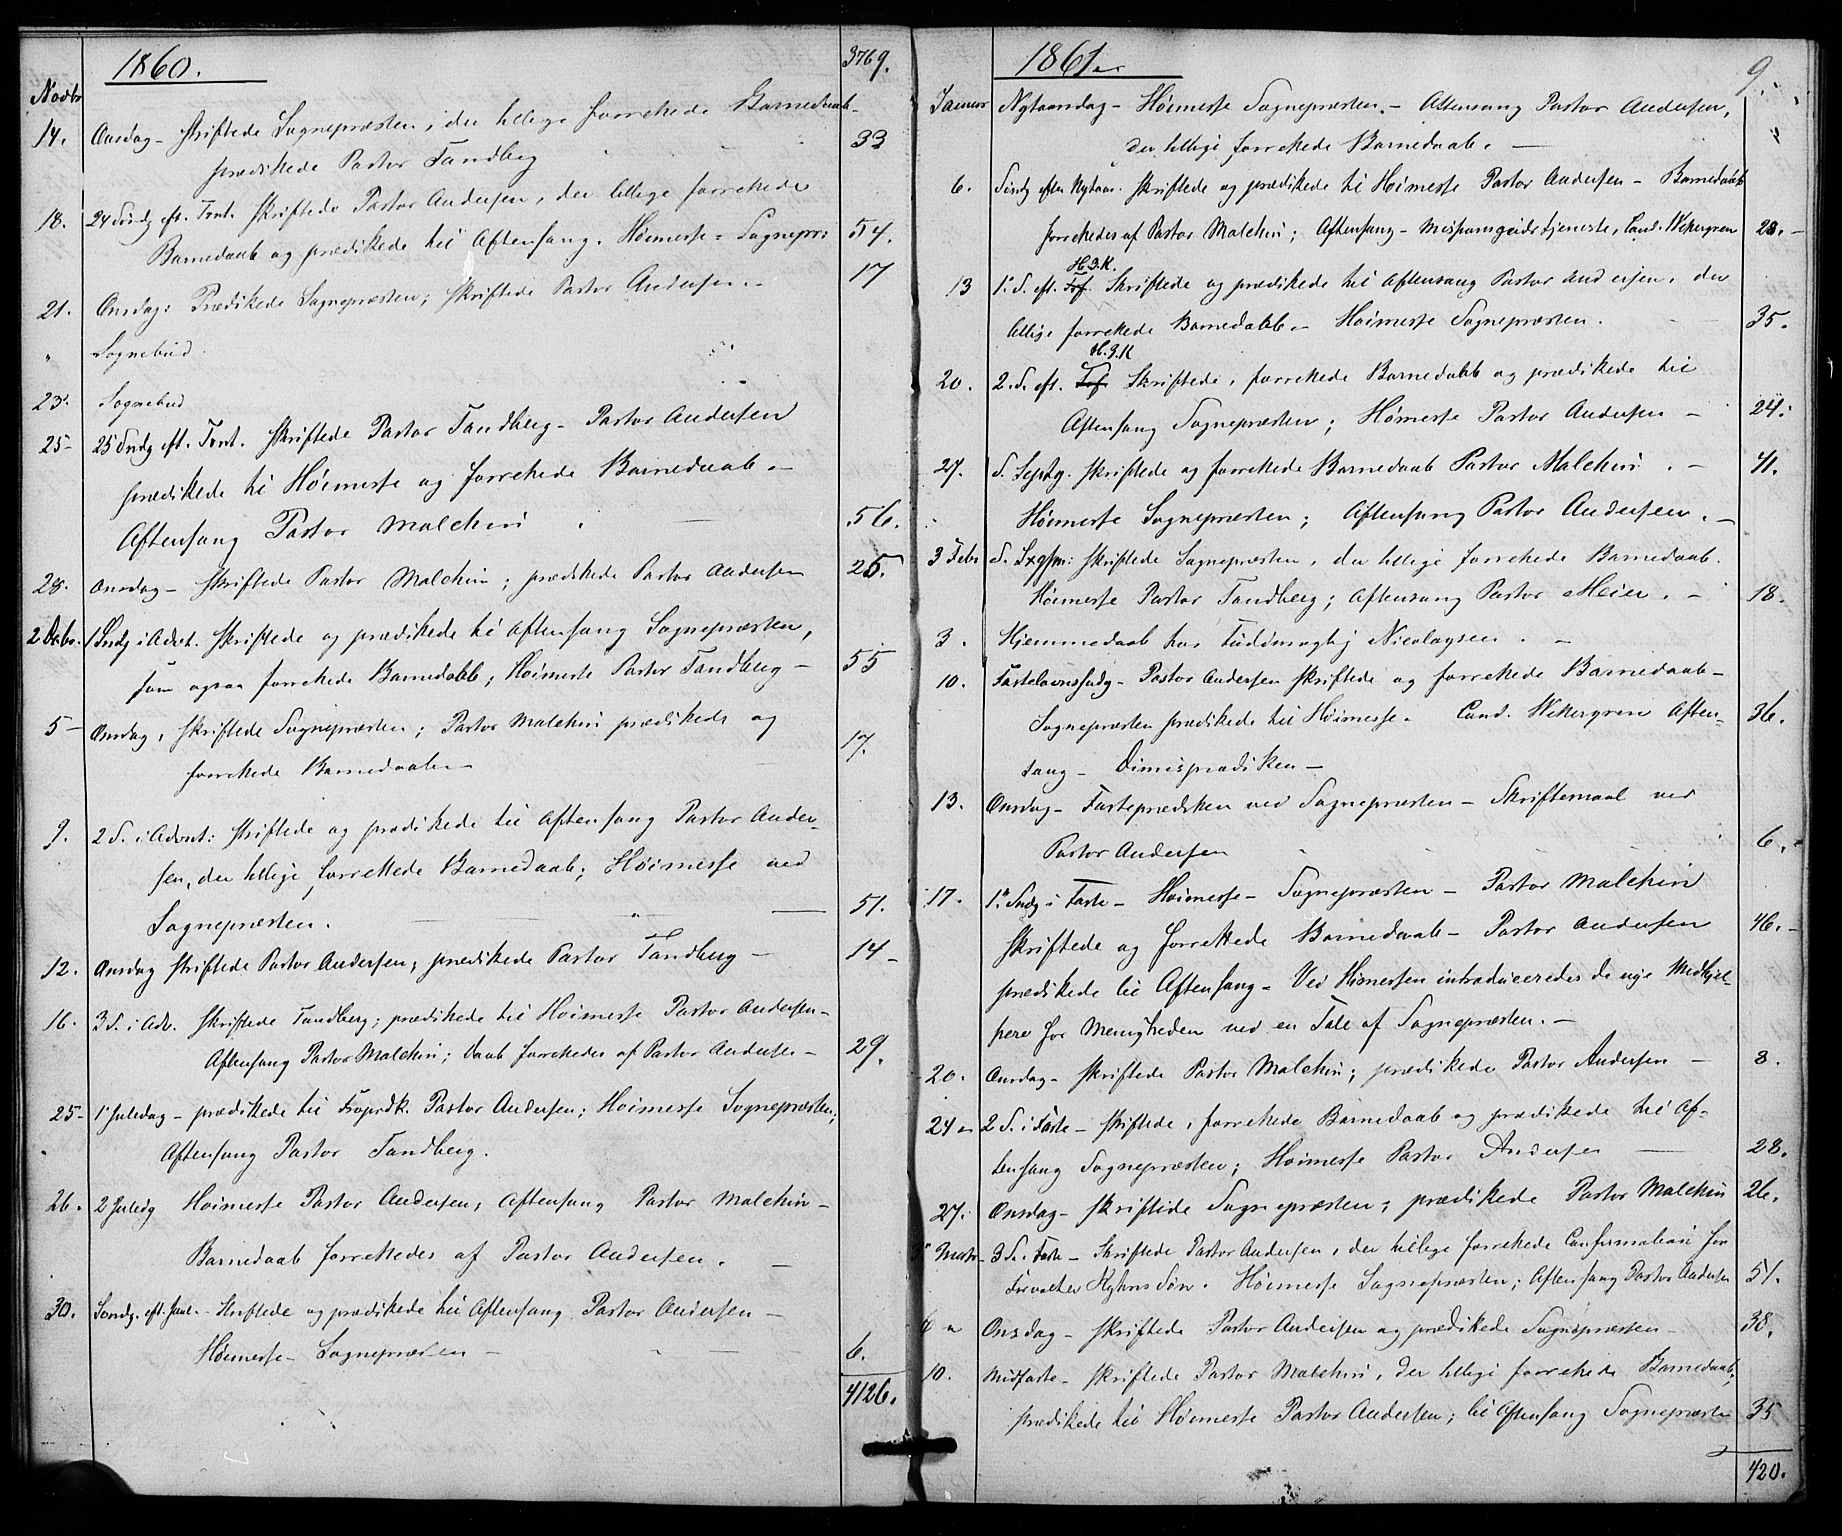 1860.
3769.
Novbr
14. Onsdag – skriftede Sognepræsten, der tillige forrettede Barnedaab –
prædikede Pastor Tandberg 33
18. 24 Sönd. eft. Trnt. skriftede Pastor Andersen, der tillige forrettede
Barnedaab og prædikede til Aftensang. Høimesse – Sognepr: 54.
21. Onsdag: Prædikede Sognepræsten; skriftede Pastor Andersen – 17
" Sognebud.
23. Sognebud
25 – 25 Sndg eft. Trnt. skriftede Pastor Tandberg – Pastor Andersen
prædikede til Høimesse og forrettede Barnedaab. –
Aftensang Pastor Malchin 56.
28. Onsdag – skriftede Pastor Malchin; prædikede Pastor Andersen 25.
2 Decbr. 1 Sndg i Advt. skriftede og prædikede til Aftensang Sognepræsten,
som ogsaa forrettede Barnedaab; Høimesse Pastor Tandberg – 55
5 – Onsdag, skriftede Sognepræsten; Pastor Malchin prædikede og
forrettede Barnedaaben – 17.
9. 2 S. i Advnt: skriftede og prædikede til Aftensang Pastor Ander-
sen, der tillige forrettede Barnedaab; Høimesse ved
Sognepræsten. 51.
12. Onsdag skriftede Pastor Andersen; prædikede Pastor Tandberg – 14 –
16. 3 S. i Adv. skriftede Tandberg; prædikede til Høimesse Pastor Andersen –
Aftensang Pastor Malchin; Daab forrettedes af Pastor Andersen – 29.
25 – 1' Juledag – prædikede til Froprdk. Pastor Andersen; Høimesse Sognepræsten;
Aftensang Pastor Tandberg.
26. 2 Juledg Høimesse Pastor Andersen, Aftensang Pastor Malchin –
Barnedaab forrettedes af Pastor Andersen. –
30. Søndg. eft. Juul. – Skriftede og prædikede til Aftensang Pastor Andersen –
Høimesse – Sognepræsten – 6.
4126.
1861.
9.
Januar Nytaarsdag – Høimesse Sognepræsten. – Aftensang Pastor Andersen,
der tillige forrettede Barnedaab. –
6. Söndg efter Nytaar. skriftede og prædikede til Høimesse Pastor Andersen – Barnedaab
forrettedes af Pastor Malchin; Aftensang – Missionsgudstjeneste, Cand. Wekergren 28. –
H. 3. K.
13 1. S. eft. Trf. Skriftede og prædikede til Aftensang Pastor Andersen, der
tillige forrettede Barnedaab – Høimesse Sognepræsten. 35.
H. 3. K
20. 2. S. eft. Trf. Skriftede, forrettede Barnedaab og prædikede til
Aftensang Sognepræsten; Høimesse Pastor Andersen – 24.
27. S. Septg. skriftede og forrettede Barnedaab Pastor Malchin. – 41.
Høimesse Sognepræsten; Aftensang Pastor Andersen. –
3 Febr S. Sxgsm: skriftede Sognepræsten, der tillige forrettede Barnedaab.
Høimesse Pastor Tandberg; Aftensang Pastor Meier. – 18.
3. Hjemmedaab hos Nicolaysen. –
10. Fastelavnssndg – Pastor Andersen skriftede og forrettede Barnedaab –
Sognepræsten prædikede til Høimesse. Cand. Wekergren Aften- 36.
sang – Dimisprædiken –
13. Onsdag – Fasteprædiken ved Sognepræsten – Skriftemaal ved
Pastor Andersen 6.
17. 1. Sndg i Faste – Høimesse – Sognepræsten – Pastor Malchin
skriftede og forrettede Barnedaab – Pastor Andersen 46. –
prædikede til Aftensang – Ved Høimessen introduceredes de nye Medhjel-
pere for Menigheden ved en Tale af Sognepræsten. –
20. Onsdag – skriftede Pastor Malchin; prædikede Pastor Andersen – 8.
24 2 S. i Faste – skriftede, forrettede Barnedaab og prædikede til Af-
tensang Sognepræsten; Høimesse Pastor Andersen 28.
27. Onsdag – skriftede Sognepræsten; prædikede Pastor Malchin 26.
3 Marts 3 S. i Faste – Skriftede Pastor Andersen, der tillige forrettede Confirmation for
Forvalter Søn. Høimesse Sognepræsten; Aftensang Pastor Andersen 51.
6 Onsdag – skriftede Pastor Andersen og prædikede Sognepræsten – 38.
10. Midfaste – skriftede Pastor Malchin, der tillige forrettede Barnedaab;
prædikede til Høimesse Pastor Andersen; til Aftensang Sognepræsten 35
420.